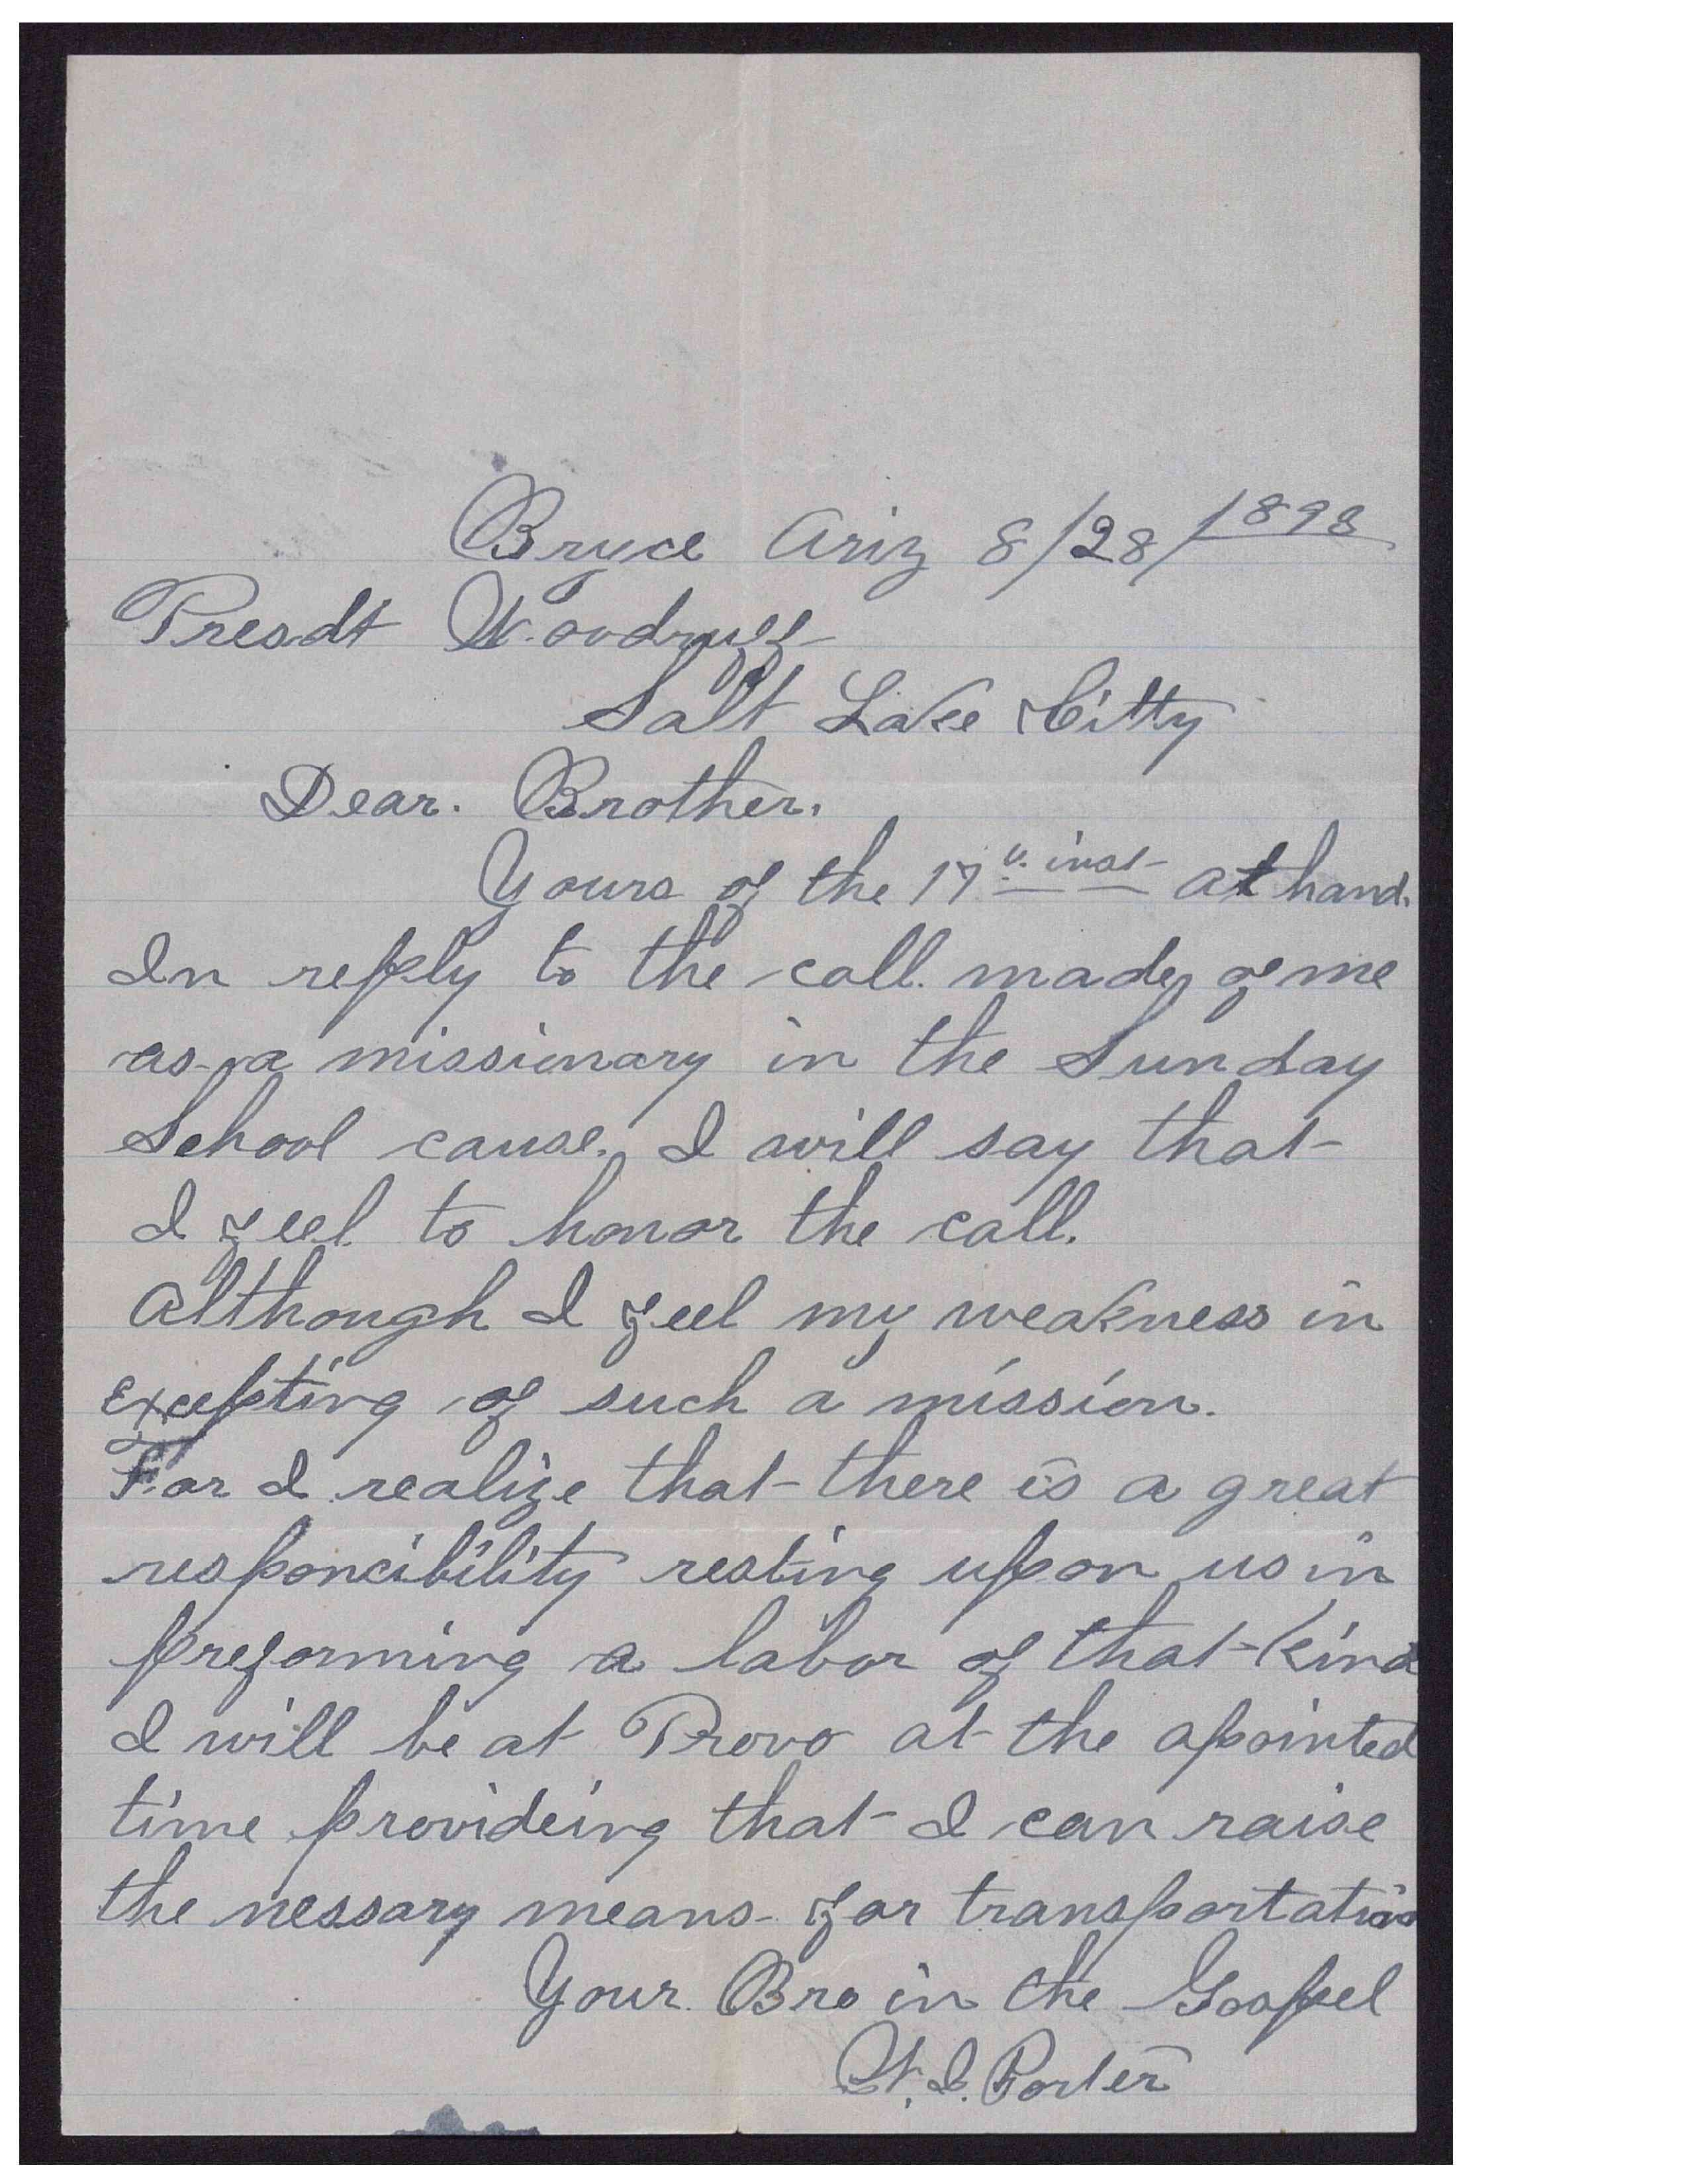 Bryce Ariz 8/28/1898
Presdt Woodruff
Salt Lake Citty
Dear. Brother.
Yours of the 17th inst at hand.
In reply to the call made of me
as a missionary in the Sunday
School cause. I will say that
I feel to honor the call.
Although I feel my weakness in
excepting of such a mission.
For I realize that there is a great
responcibility resting upon us in
preforming a labor of that kind
I will be at Provo at the apointed
time provideing that I can raise
the nessary means for transportation
Your Bro in the Gospel
W. I. Porter